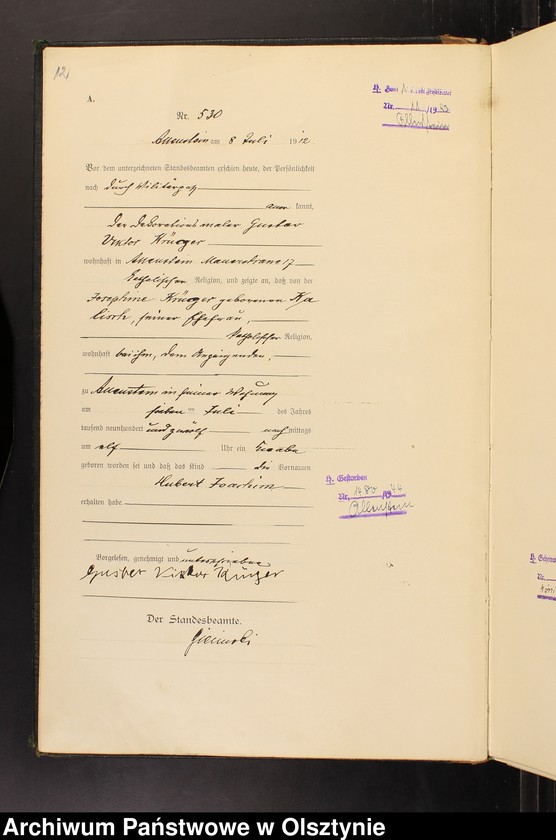 12
A.
Nr. 530
Allenstein am 8 Juli 1912
Vor dem unterzeichneten Standesbeamten erschien heute, der Persönlichkeit
nach durch Militärpaß
kannt,
Der Dekorationsmaler Gustav
Viktor Krueger
wohnhaft in Allenstein Mauerstrasse 17
katholischer Religion, und zeigte an, daß von der
Josephine Krueger geborenen Ka
lisch, seiner Ehefrau,
katholischer Religion,
wohnhaft bei ihm, dem Anzeigenden,
zu Allenstein in seiner Wohnung
am sieben ten Juli des Jahres
tausend neunhundert und zwölf nach mittags
um elf Uhr ein Knabe
geboren worden sei und daß das Kind die Vornamen
Hubert Joachim
erhalten habe
Vorgelesen, genehmigt und unterschrieben
Gustav Viktor Krüger
Der Standesbeamte.
H.
Nr. 11/1933
Allenstein
H. Gestorben
Nr. 1944
Allenstein
H.
Nr.
Archiwum Państwowe w Olsztynie